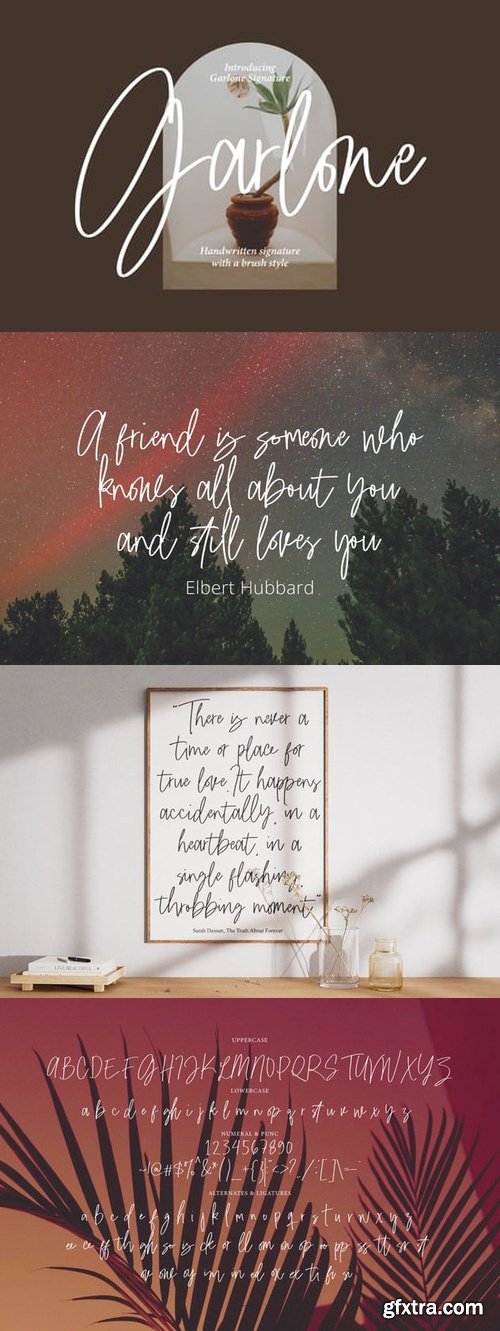 Introducing
Garlone Signature
Garlone
Handwritten signature
with a brush style
A friend is someone who
knows all about you
and still loves you
Elbert Hubbard
"There is never a
time or place for
true love. It happens
accidentally, in a
heartbeat, in a
single flashing,
throbbing moment"
Sarah Dessen, The Truth About Forever
LIVE BEAUTIFUL
UPPERCASE
ABCDEFGHIJKLMNOPQRSTUVWXYZ
LOWERCASE
a b c d e f g h i j k l m n o p q r s t u v w x y z
NUMERAL & PUNC
1234567890
ALTERNATES & LIGATURES
a b c d e f g h i j k l m n o p q r s t u v w x y z
gfxtra.com